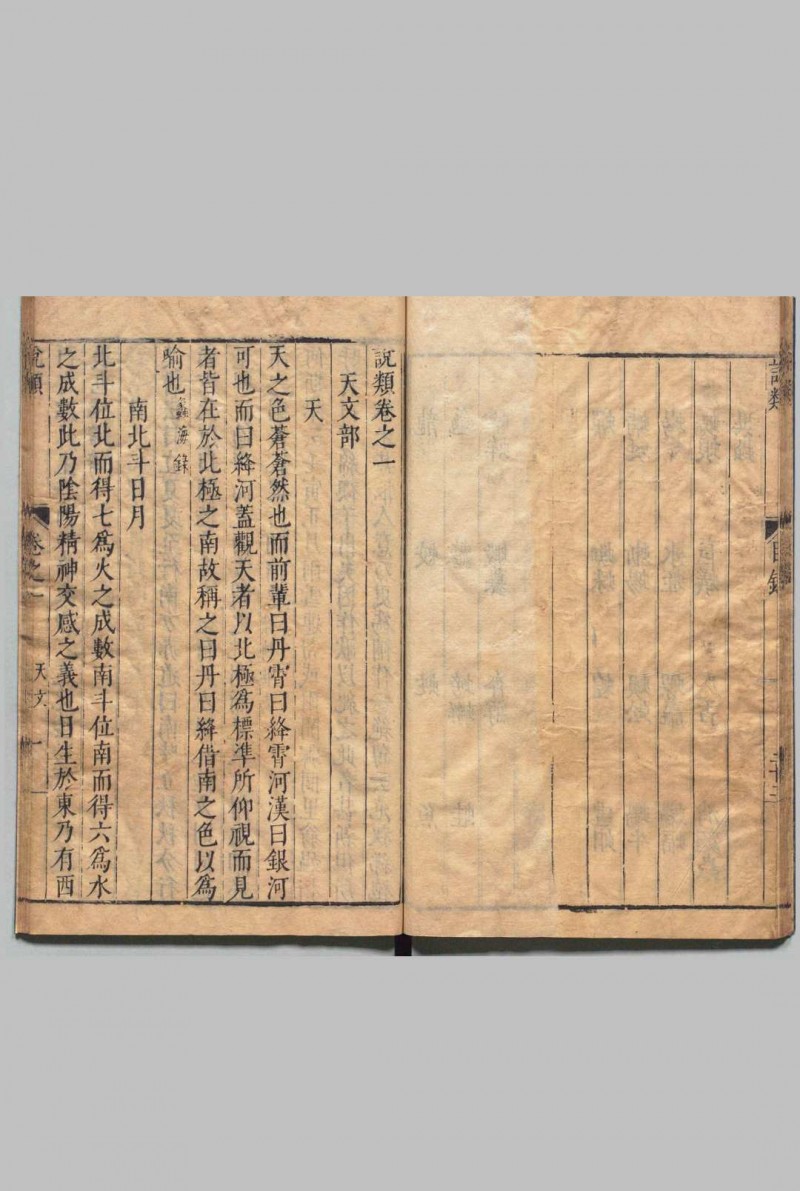 說類
目錄
二十三
說類卷之一
天文部
天
天之色蒼蒼然也而前輩曰丹霄曰絳霄河漢曰銀河
可也而曰絳河蓋觀天者以北極為標準所仰視而見
者皆在於北極之南故稱之曰丹曰絳借南之色以為
喻也 蠡海錄
南北斗日月
北斗位北而得七為火之成數南斗位南而得六為水
之成數此乃陰陽精神交感之義也日生於東乃有西
說類
卷之一
天文
一